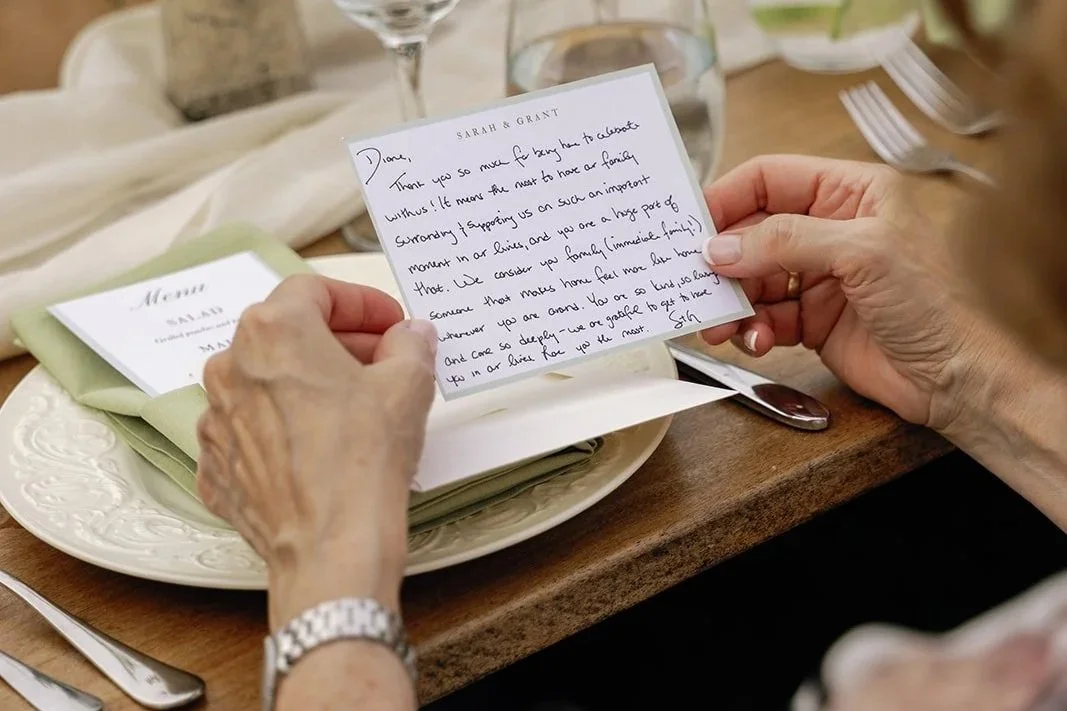 SARAH & GRANT
Diane,
Thank you so much for being here to celebrate
with us! It means the most to have our family
surrounding & supporting us on such an important
moment in our lives, and you are a huge part of
that. We consider you family (immediate family!)
someone that makes home feel more like home
wherever you are around. You are so kind, so loving
and care so deeply - we are grateful to get to have
you in our lives. Love you the most. S+G
Menu
SALAD
Grilled peaches and
MA